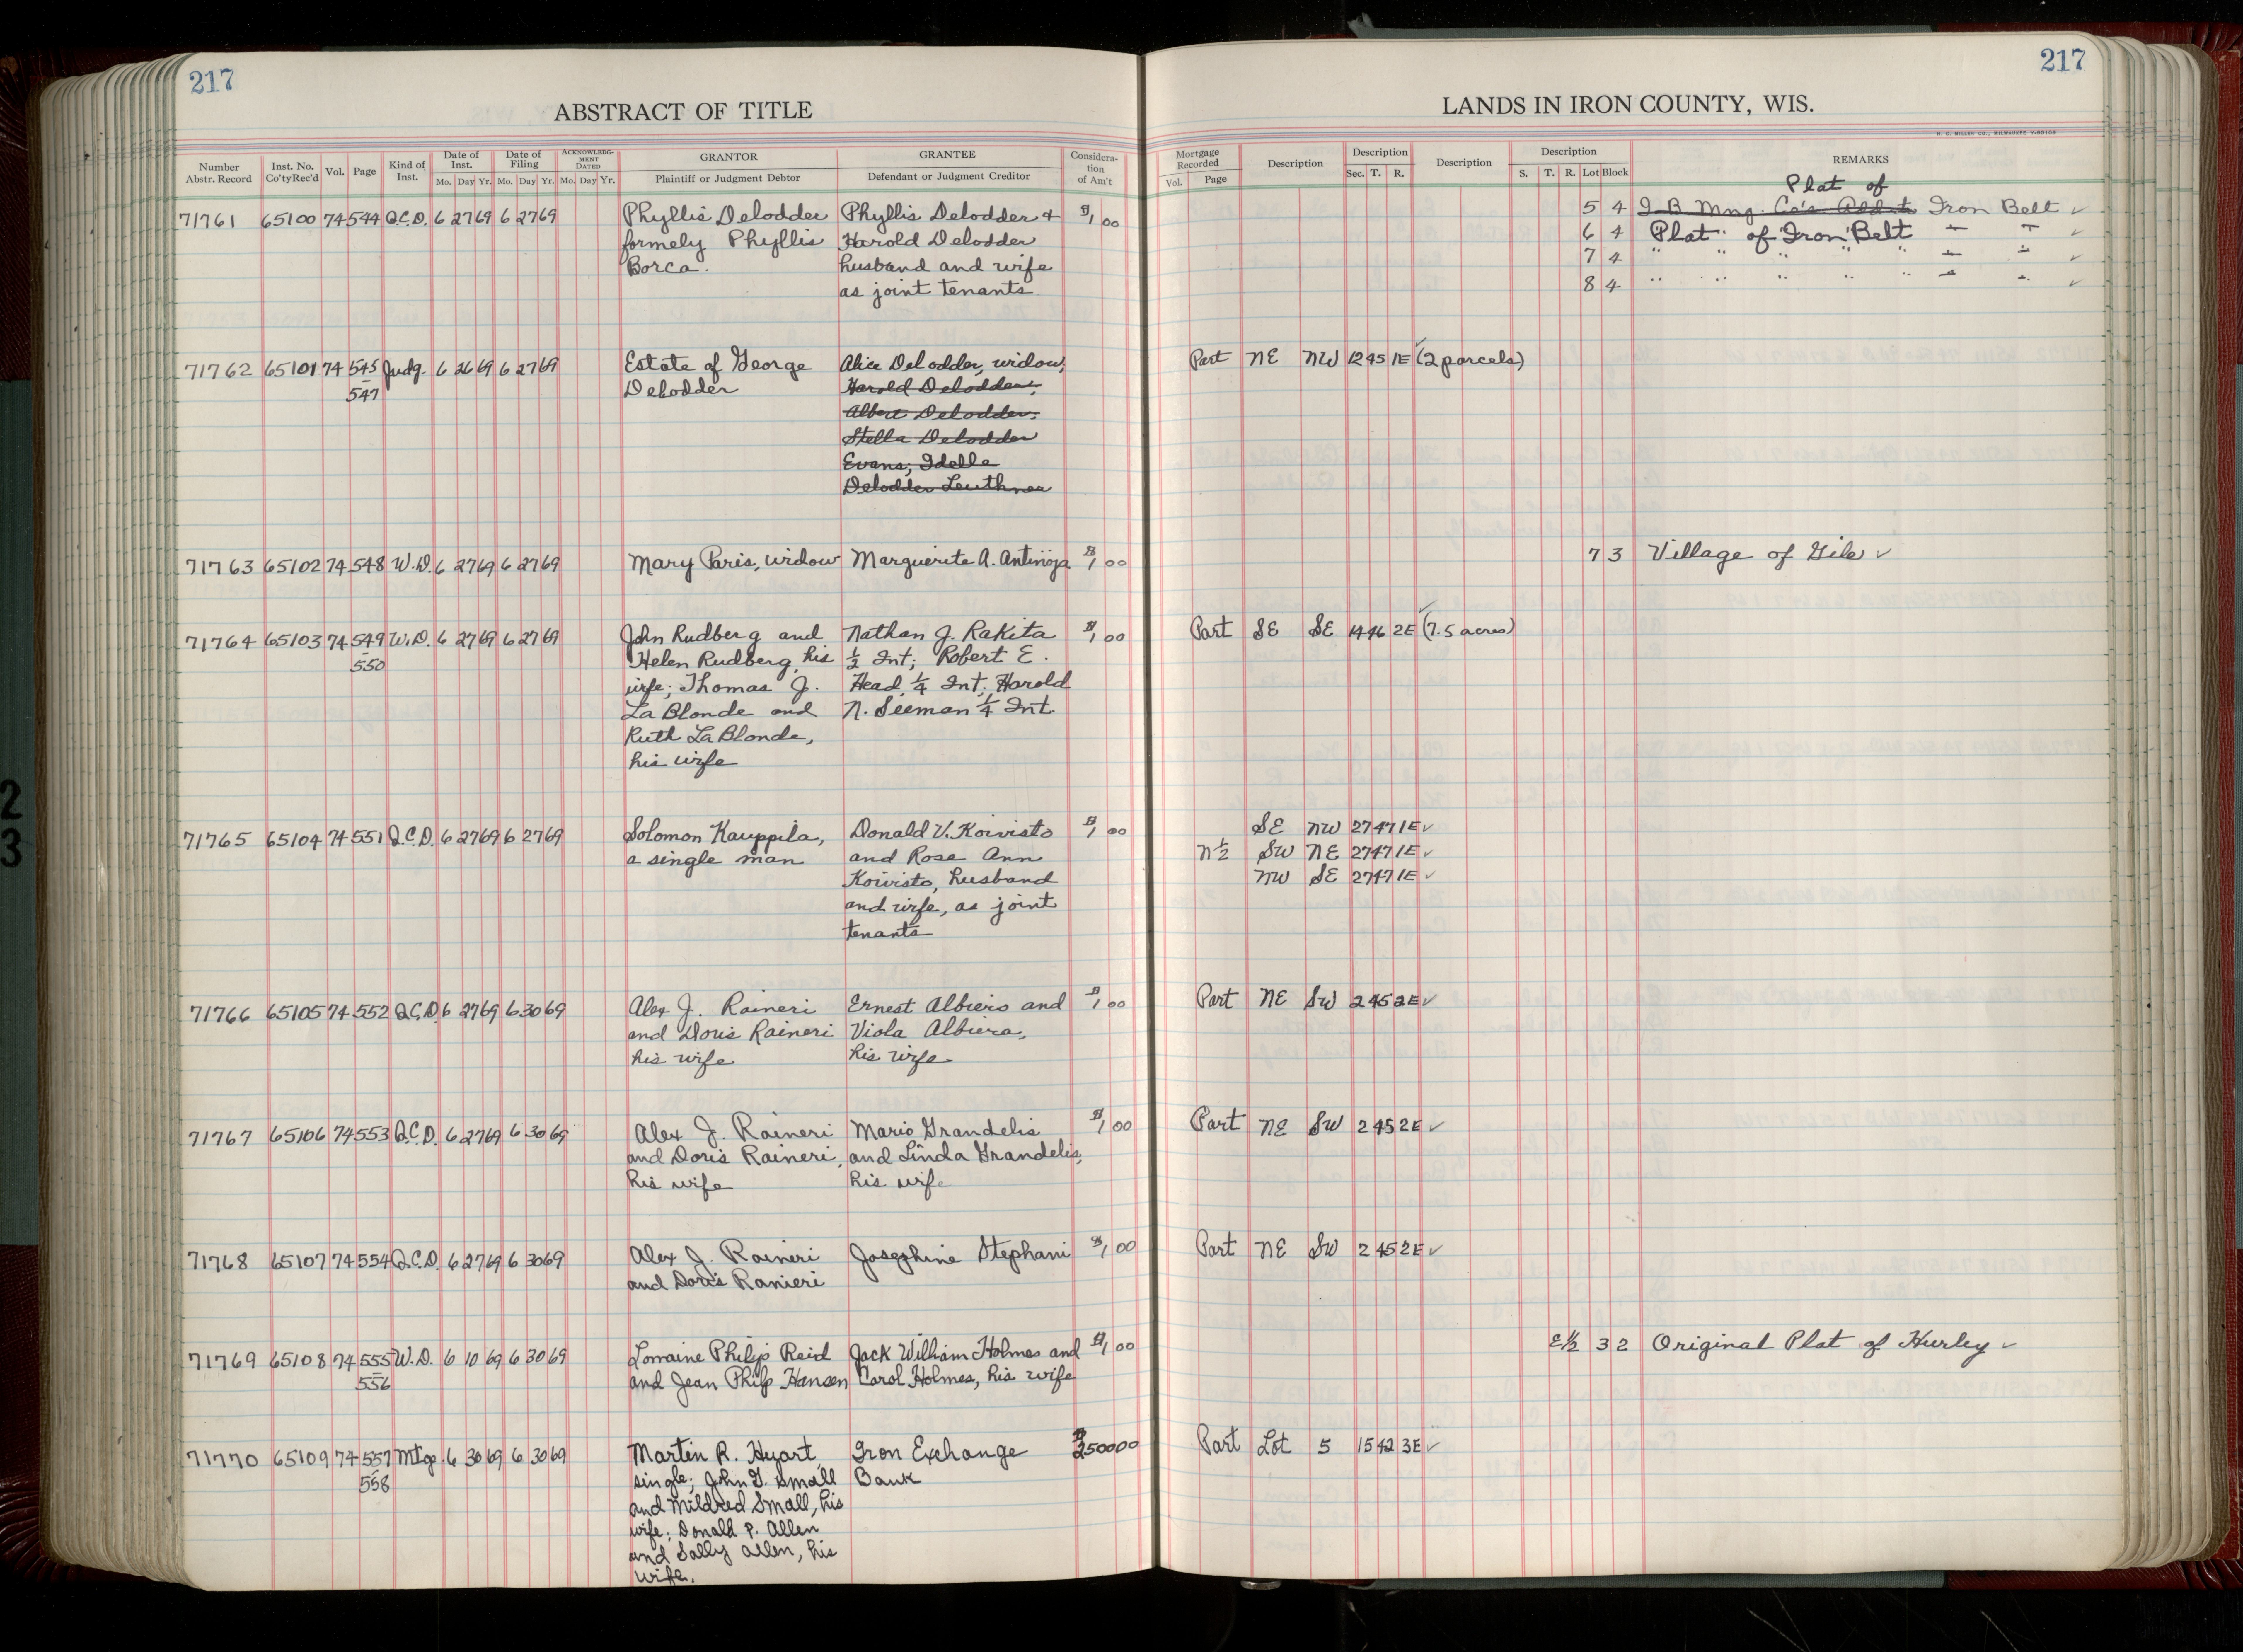 217
217
ABSTRACT OF TITLE
LANDS IN IRON COUNTY, WIS.
H. C. MILLER CO., MILWAUKEE
Number Abstr. Record | Inst. No. Co'ty Rec'd | Vol. | Page | Kind of Inst. | Date of Inst. Mo. Day Yr. | Date of Filing Mo. Day Yr. | ACKNOWLEDGMENT DATED Mo. Day Yr. | GRANTOR Plaintiff or Judgment Debtor | GRANTEE Defendant or Judgment Creditor | Consideration of Am't
Mortgage Recorded Vol. Page | Description | Description Sec. T. R. | Description | Description S. T. R. Lot Block | REMARKS
Plat of
71761 65100 74 544 Q.C.D. 6 27 69 6 27 69 Phyllis Delodder Phyllis Delodder + $1 00 5 4 I B Mng. Co's Addit Iron Belt ✓
formely Phyllis Harold Delodder 6 4 Plat of Iron Belt ✓
Borca. husband and wife 7 4 " " " " " ✓
as joint tenants 8 4 " " " " " ✓
71762 65101 74 545 Judg. 6 26 69 6 27 69 Estate of George Alice Delodder, widow, Part NE NW 12 45 1E (2 parcels) ✓
547 Delodder Harold Delodder,
Albert Delodder,
Stella Delodder
Evans, Idelle
Delodder Leuthner
71763 65102 74 548 W.D. 6 27 69 6 27 69 Mary Paris, widow Marguerite A. Antinoja $1 00 7 3 Village of Gile ✓
71764 65103 74 549 W.D. 6 27 69 6 27 69 John Rudberg and Nathan J. Rakita $1 00 Part SE SE 14 46 2E (7.5 acres) ✓
550 Helen Rudberg, his ½ Int; Robert E.
wife; Thomas J. Head, ¼ Int; Harold
La Blonde and N. Seeman ¼ Int
Ruth La Blonde,
his wife
71765 65104 74 551 Q.C.D. 6 27 69 6 27 69 Solomon Kauppila, Donald V. Koivisto $1 00 SE NW 27 47 1E ✓
a single man and Rose Ann N½ SW NE 27 47 1E ✓
Koivisto, husband NW SE 27 47 1E ✓
and wife, as joint
tenants
71766 65105 74 552 Q.C.D. 6 27 69 6 30 69 Alex J. Raineri Ernest Albiero and $1 00 Part NE SW 2 45 2E ✓
and Doris Raineri Viola Albiera,
his wife his wife
71767 65106 74 553 Q.C.D. 6 27 69 6 30 69 Alex J. Raineri Mario Grandelis $1 00 Part NE SW 2 45 2E ✓
and Doris Raineri, and Linda Grandelis,
his wife his wife
71768 65107 74 554 Q.C.D. 6 27 69 6 30 69 Alex J. Raineri Josephine Stephani $1 00 Part NE SW 2 45 2E ✓
and Doris Ranieri
71769 65108 74 555 W.D. 6 10 69 6 30 69 Lorraine Philip Reid Jack William Holmes and $1 00 E½ 3 2 Original Plat of Hurley ✓
556 and Jean Philp Hansen Carol Holmes, his wife
71770 65109 74 557 Mtge. 6 30 69 6 30 69 Martin R. Hyart, Iron Exchange $2500 00 Part Lot 5 15 42 3E ✓
558 single; John G. Small Bank
and Mildred Small, his
wife; Donald P. Allen
and Sally Allen, his
wife.
2
3